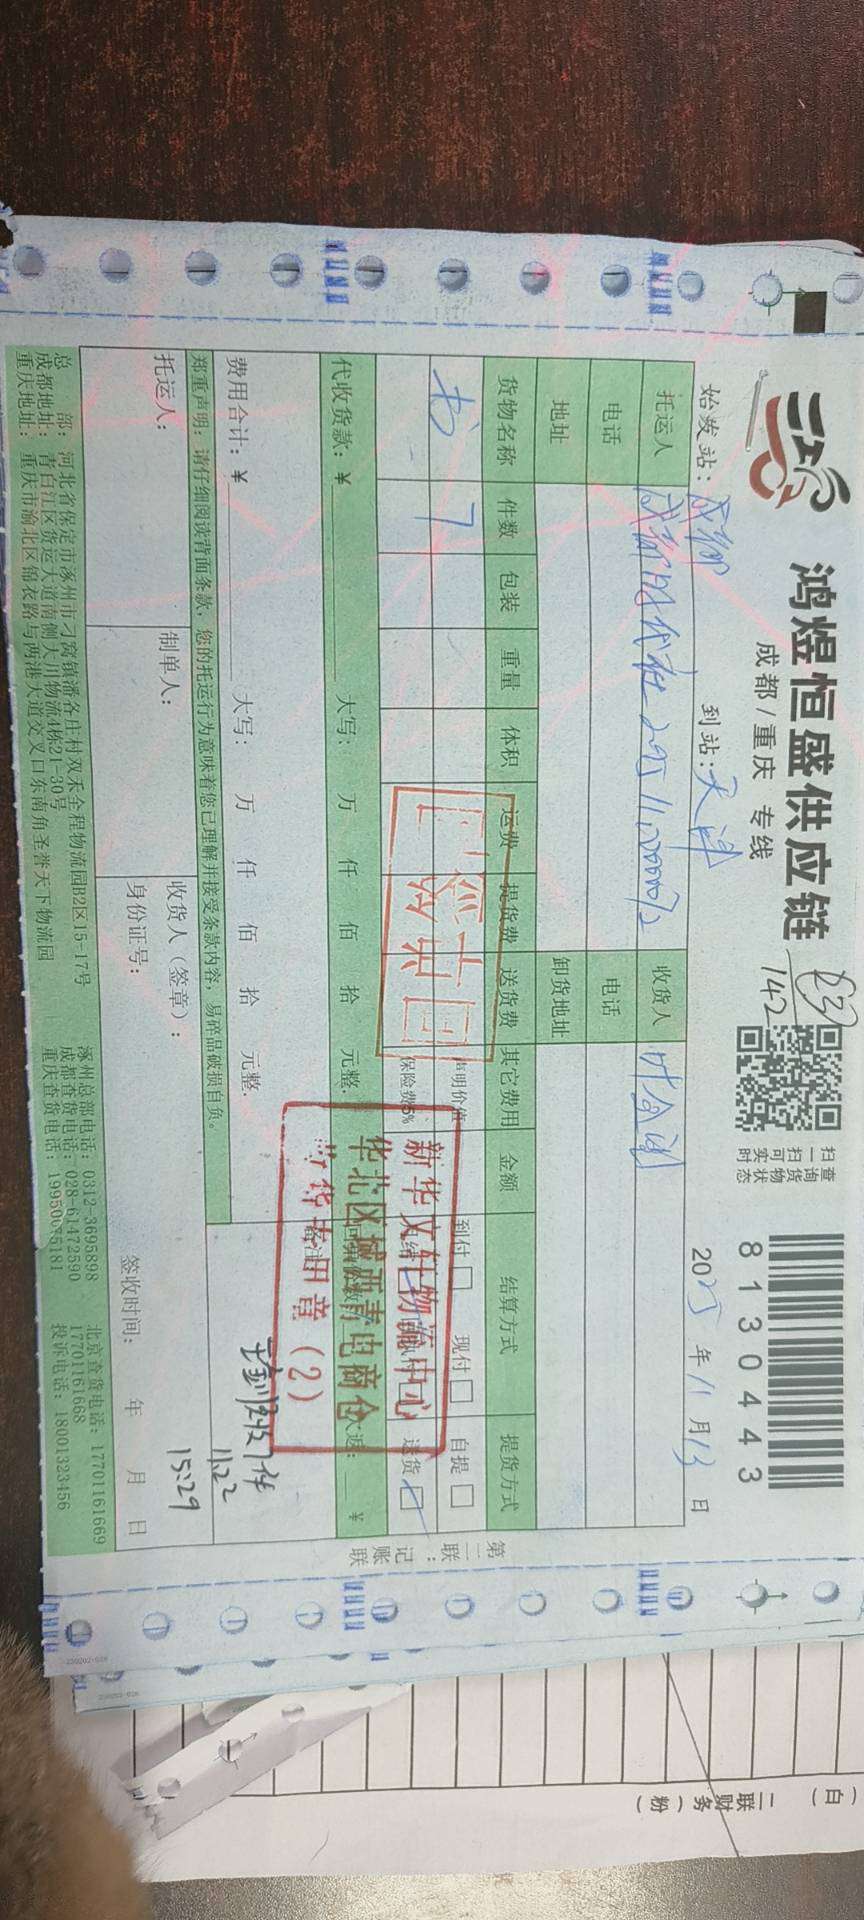 鸿煜恒盛供应链
成都/重庆 专线
142
扫一扫
查询货物实时状态
8130443
始发站：成都
到站：天津
2025年11月13日
托运人
成都时代社
收货人
叶台湖
电话
电话
地址
卸货地址
货物名称 件数 包装 重量 体积 运费 提货费 送货费 其它费用 金额 结算方式 提货方式
书 7
声明价值
到付□ 现付□
自提□
保险费5%
送货☑
已签古回
代收货款：¥
大写： 万 仟 佰 拾 元整.
¥
新华文轩物流中心
华北区域西青电商仓
收货专用章（2）
费用合计：¥
大写： 万 仟 佰 拾 元整.
实收7件
11.22
15:29
郑重声明：请仔细阅读背面条款，您的托运行为意味着您已理解并接受条款内容，易碎品破损自负。
托运人：
制单人：
收货人（签章）：
身份证号：
签收时间： 年 月 日
总 部：河北省保定市涿州市刁窝镇潘各庄村双禾全程物流园B2区15-17号
成都地址：青白江区货运大道南侧天川物流4栋21-30号
重庆地址：重庆市渝北区锦衣路与两港大道交叉口东南角圣誉天下物流园
涿州总部电话：0312-3695898
成都查货电话：028-61472590
重庆查货电话：19950675181
北京查货电话：17701161669
17701161668
投诉电话：18001323456
第二联：记账联
230202-02R
（白）
二联财务（粉）